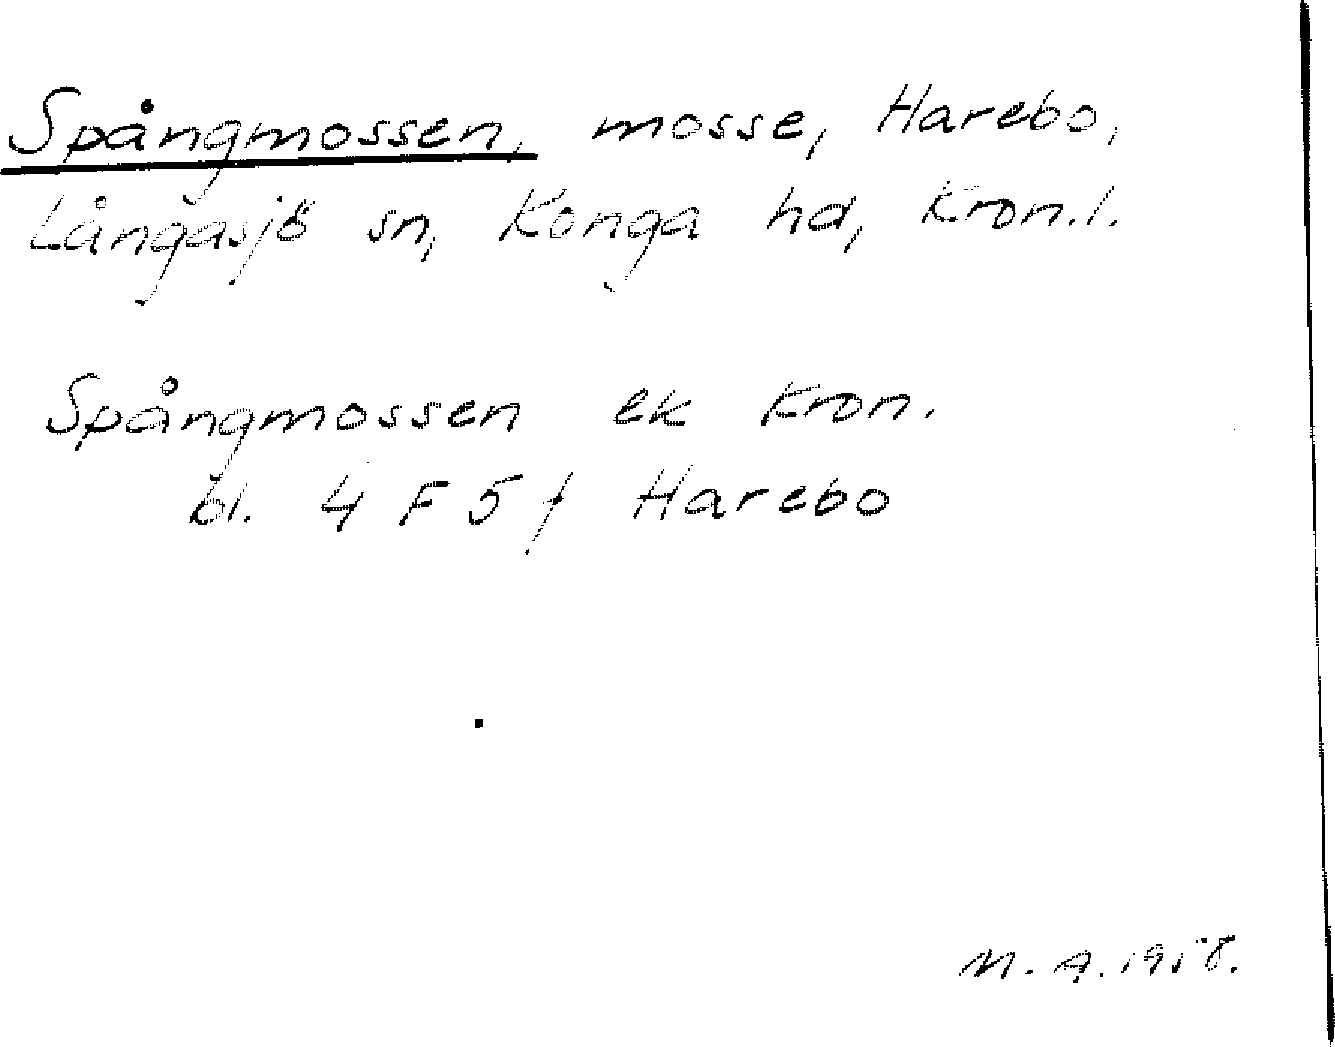 Spångmossen, mosse, Harebo,
Långasjö sn, Konga hd, Kron.l.
Spångmossen ek Kron.
bl. 4 F 5 f Harebo
M. A. 1958.